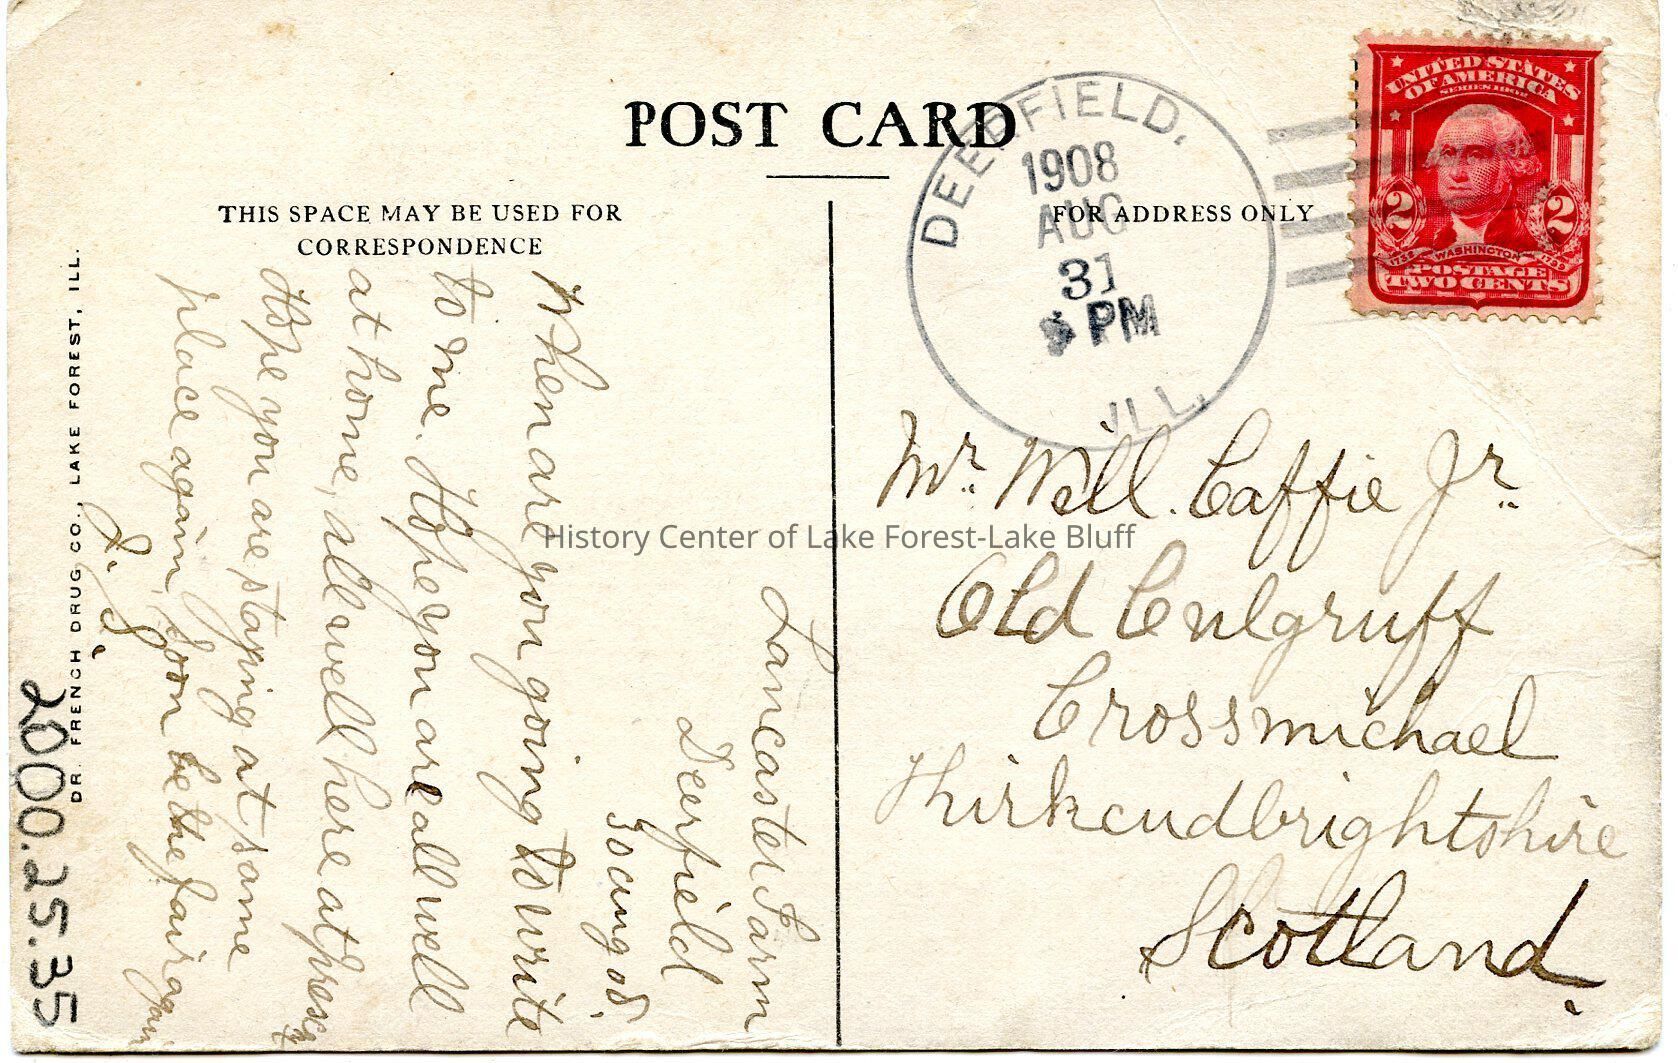 POST CARD
THIS SPACE MAY BE USED FOR
CORRESPONDENCE
FOR ADDRESS ONLY
DEERFIELD,
1908
AUG
31
PM
ILL.
UNITED STATES
OF AMERICA
SERIES 1902
2 2
1732 WASHINGTON 1799
POSTAGE
TWO CENTS
Lancaster Farm
Deerfield
30 aug 08.
When are you going to write
to me. Hope you are all well
at home, all well here at present
Hope you are staying at same
place again, soon be the fair again
J. G.
Mr. Will. Caffie Jr.
Old Culgruff
Crossmichael
Kirkcudbrightshire
Scotland.
DR. FRENCH DRUG CO., LAKE FOREST, ILL.
2000.25.35
History Center of Lake Forest-Lake Bluff